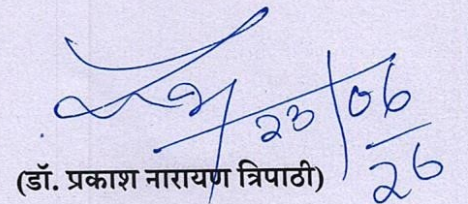 23/06/26
(डॉ. प्रकाश नारायण त्रिपाठी)